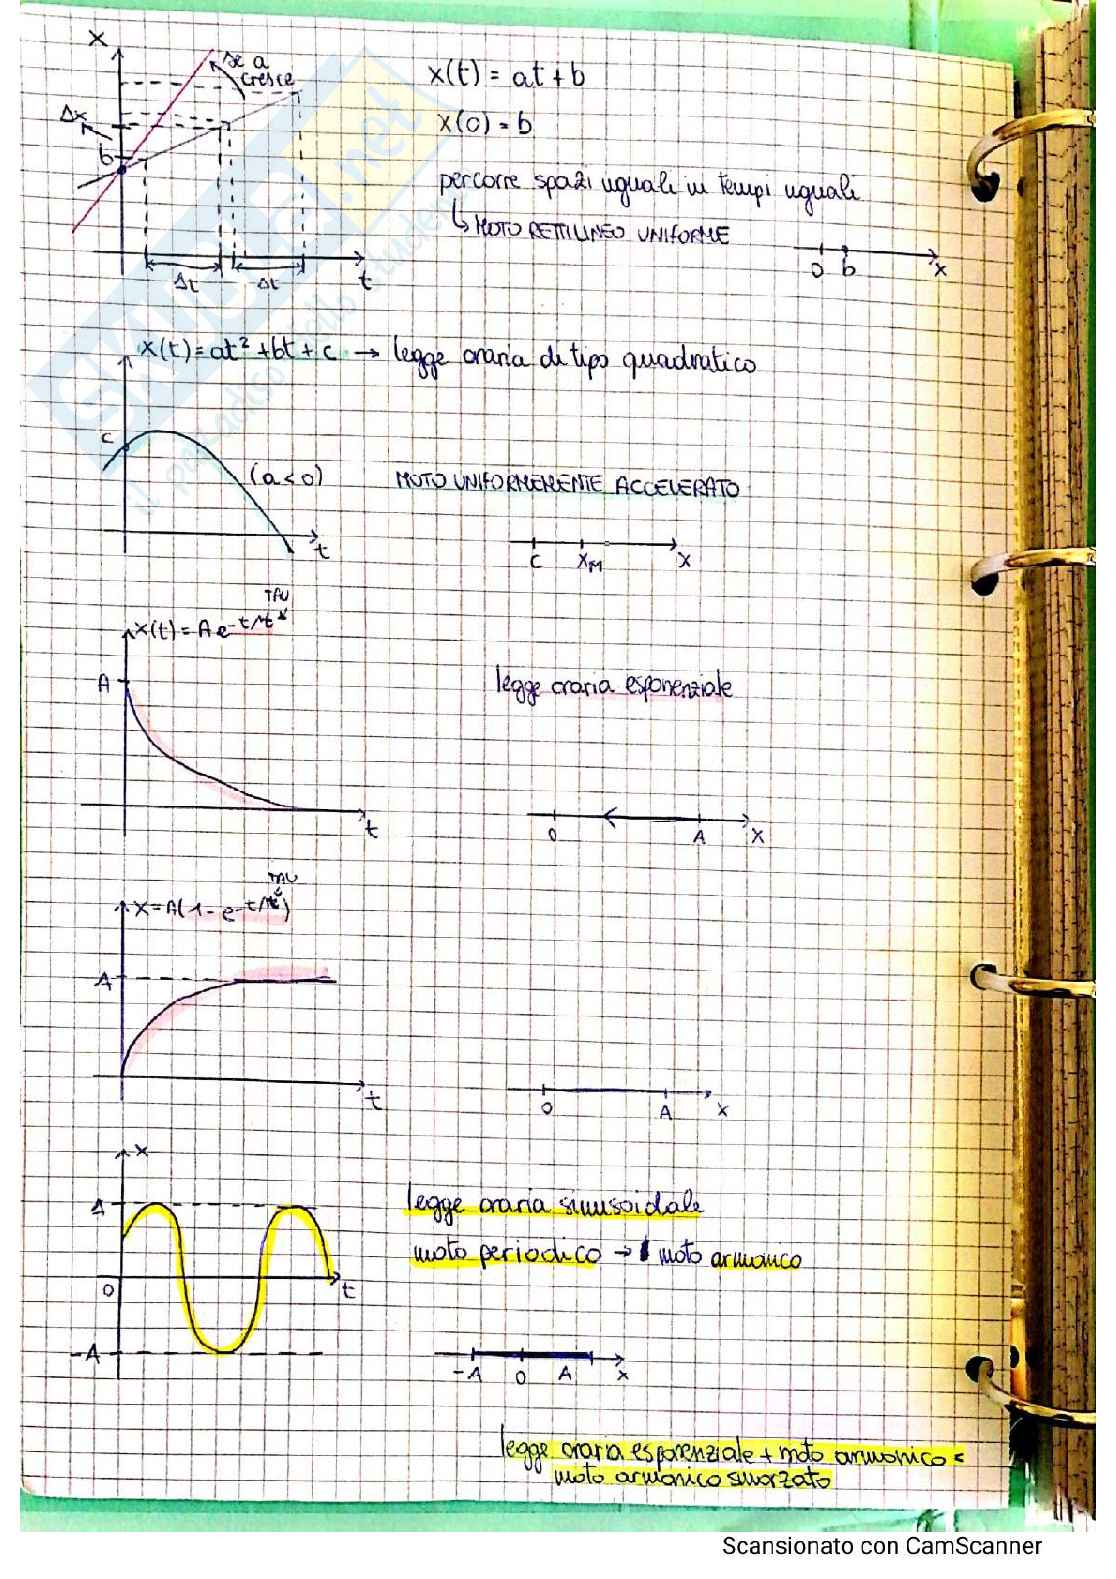 x
se a
cresce
x(t) = at + b
Δx
x(0) = b
b
percorre spazi uguali in tempi uguali
↳ MOTO RETTILINEO UNIFORME
Δt Δt t
0 b x
x(t) = at² + bt + c → legge oraria di tipo quadratico
c
(a<0)
MOTO UNIFORMEMENTE ACCELERATO
t
c xM x
TAU
x(t) = A e^-t/τ
A
legge oraria esponenziale
t
0 A x
TAU
x = A(1 - e^-t/τ)
A
t
0 A x
x
A
legge oraria sinusoidale
moto periodico → moto armonico
0 t
-A
-A 0 A x
legge oraria esponenziale + moto armonico =
moto armonico smorzato
Scansionato con CamScanner